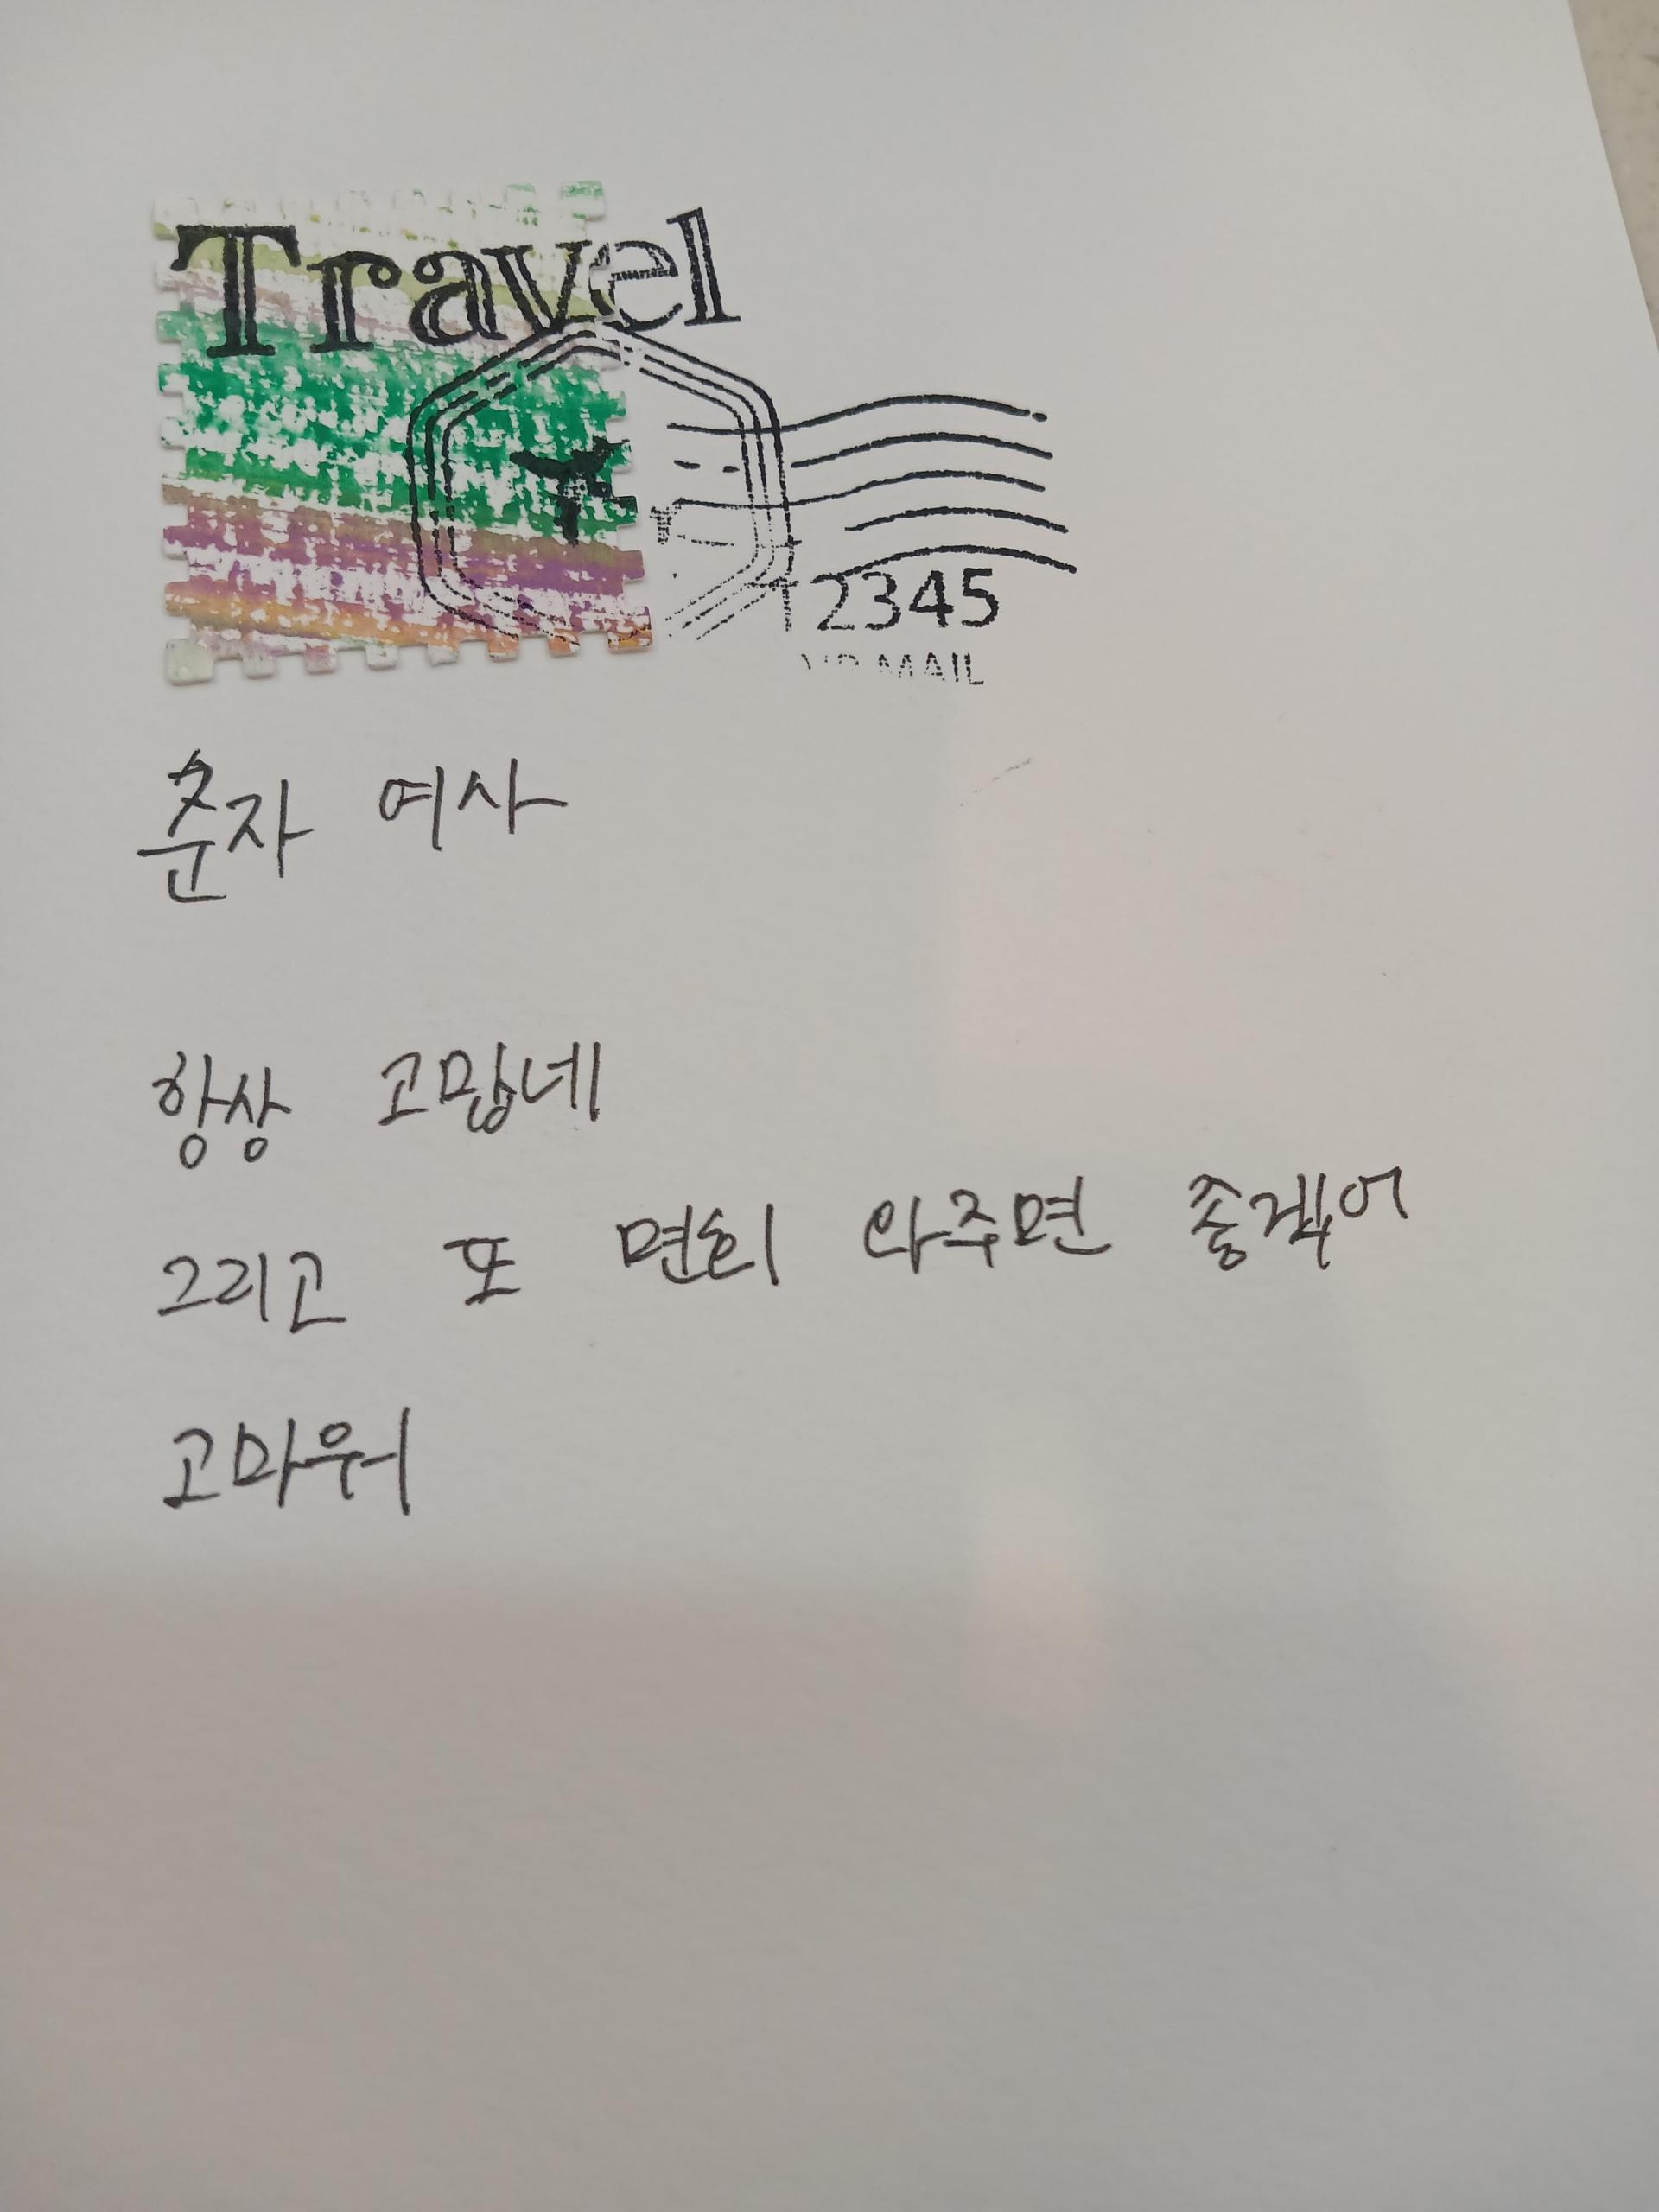 Travel
12345
MAIL
춘자 여사
항상 고맙네
그리고 또 면회 와주면 좋겠어
고마워